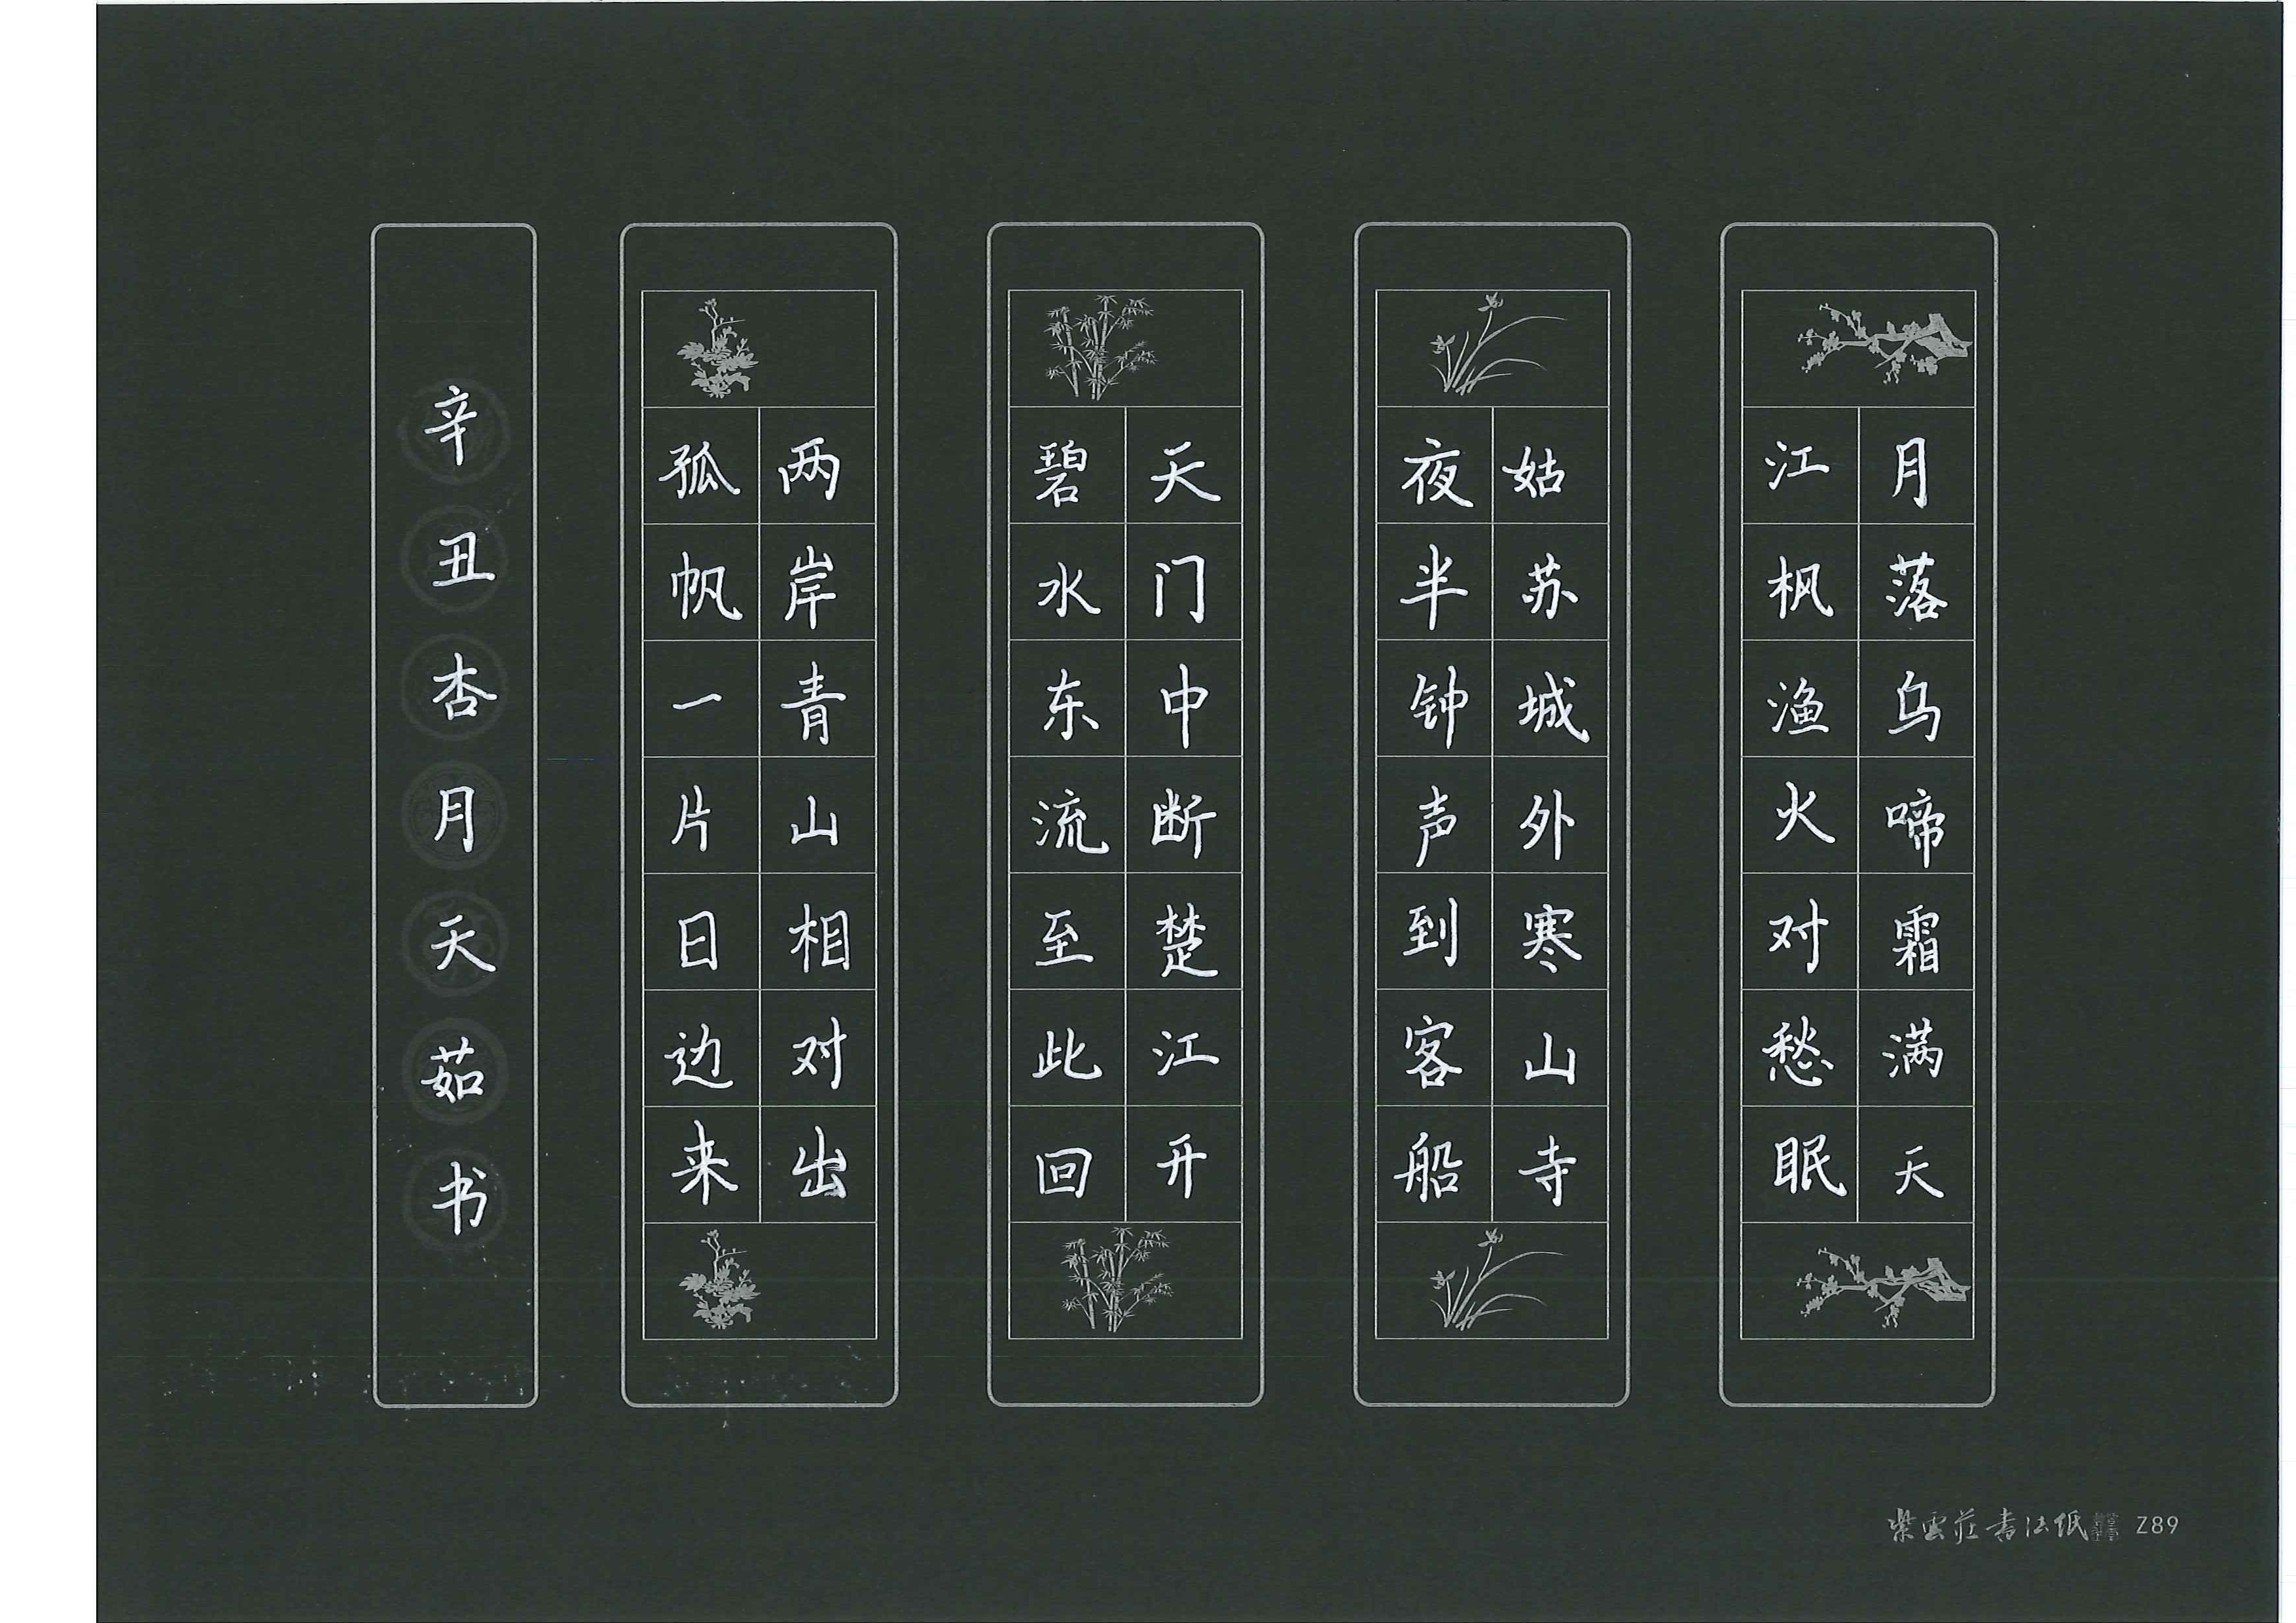 月落乌啼霜满天
江枫渔火对愁眠
姑苏城外寒山寺
夜半钟声到客船
天门中断楚江开
碧水东流至此回
两岸青山相对出
孤帆一片日边来
辛丑杏月天茹书
紫雲莊書法紙 Z89